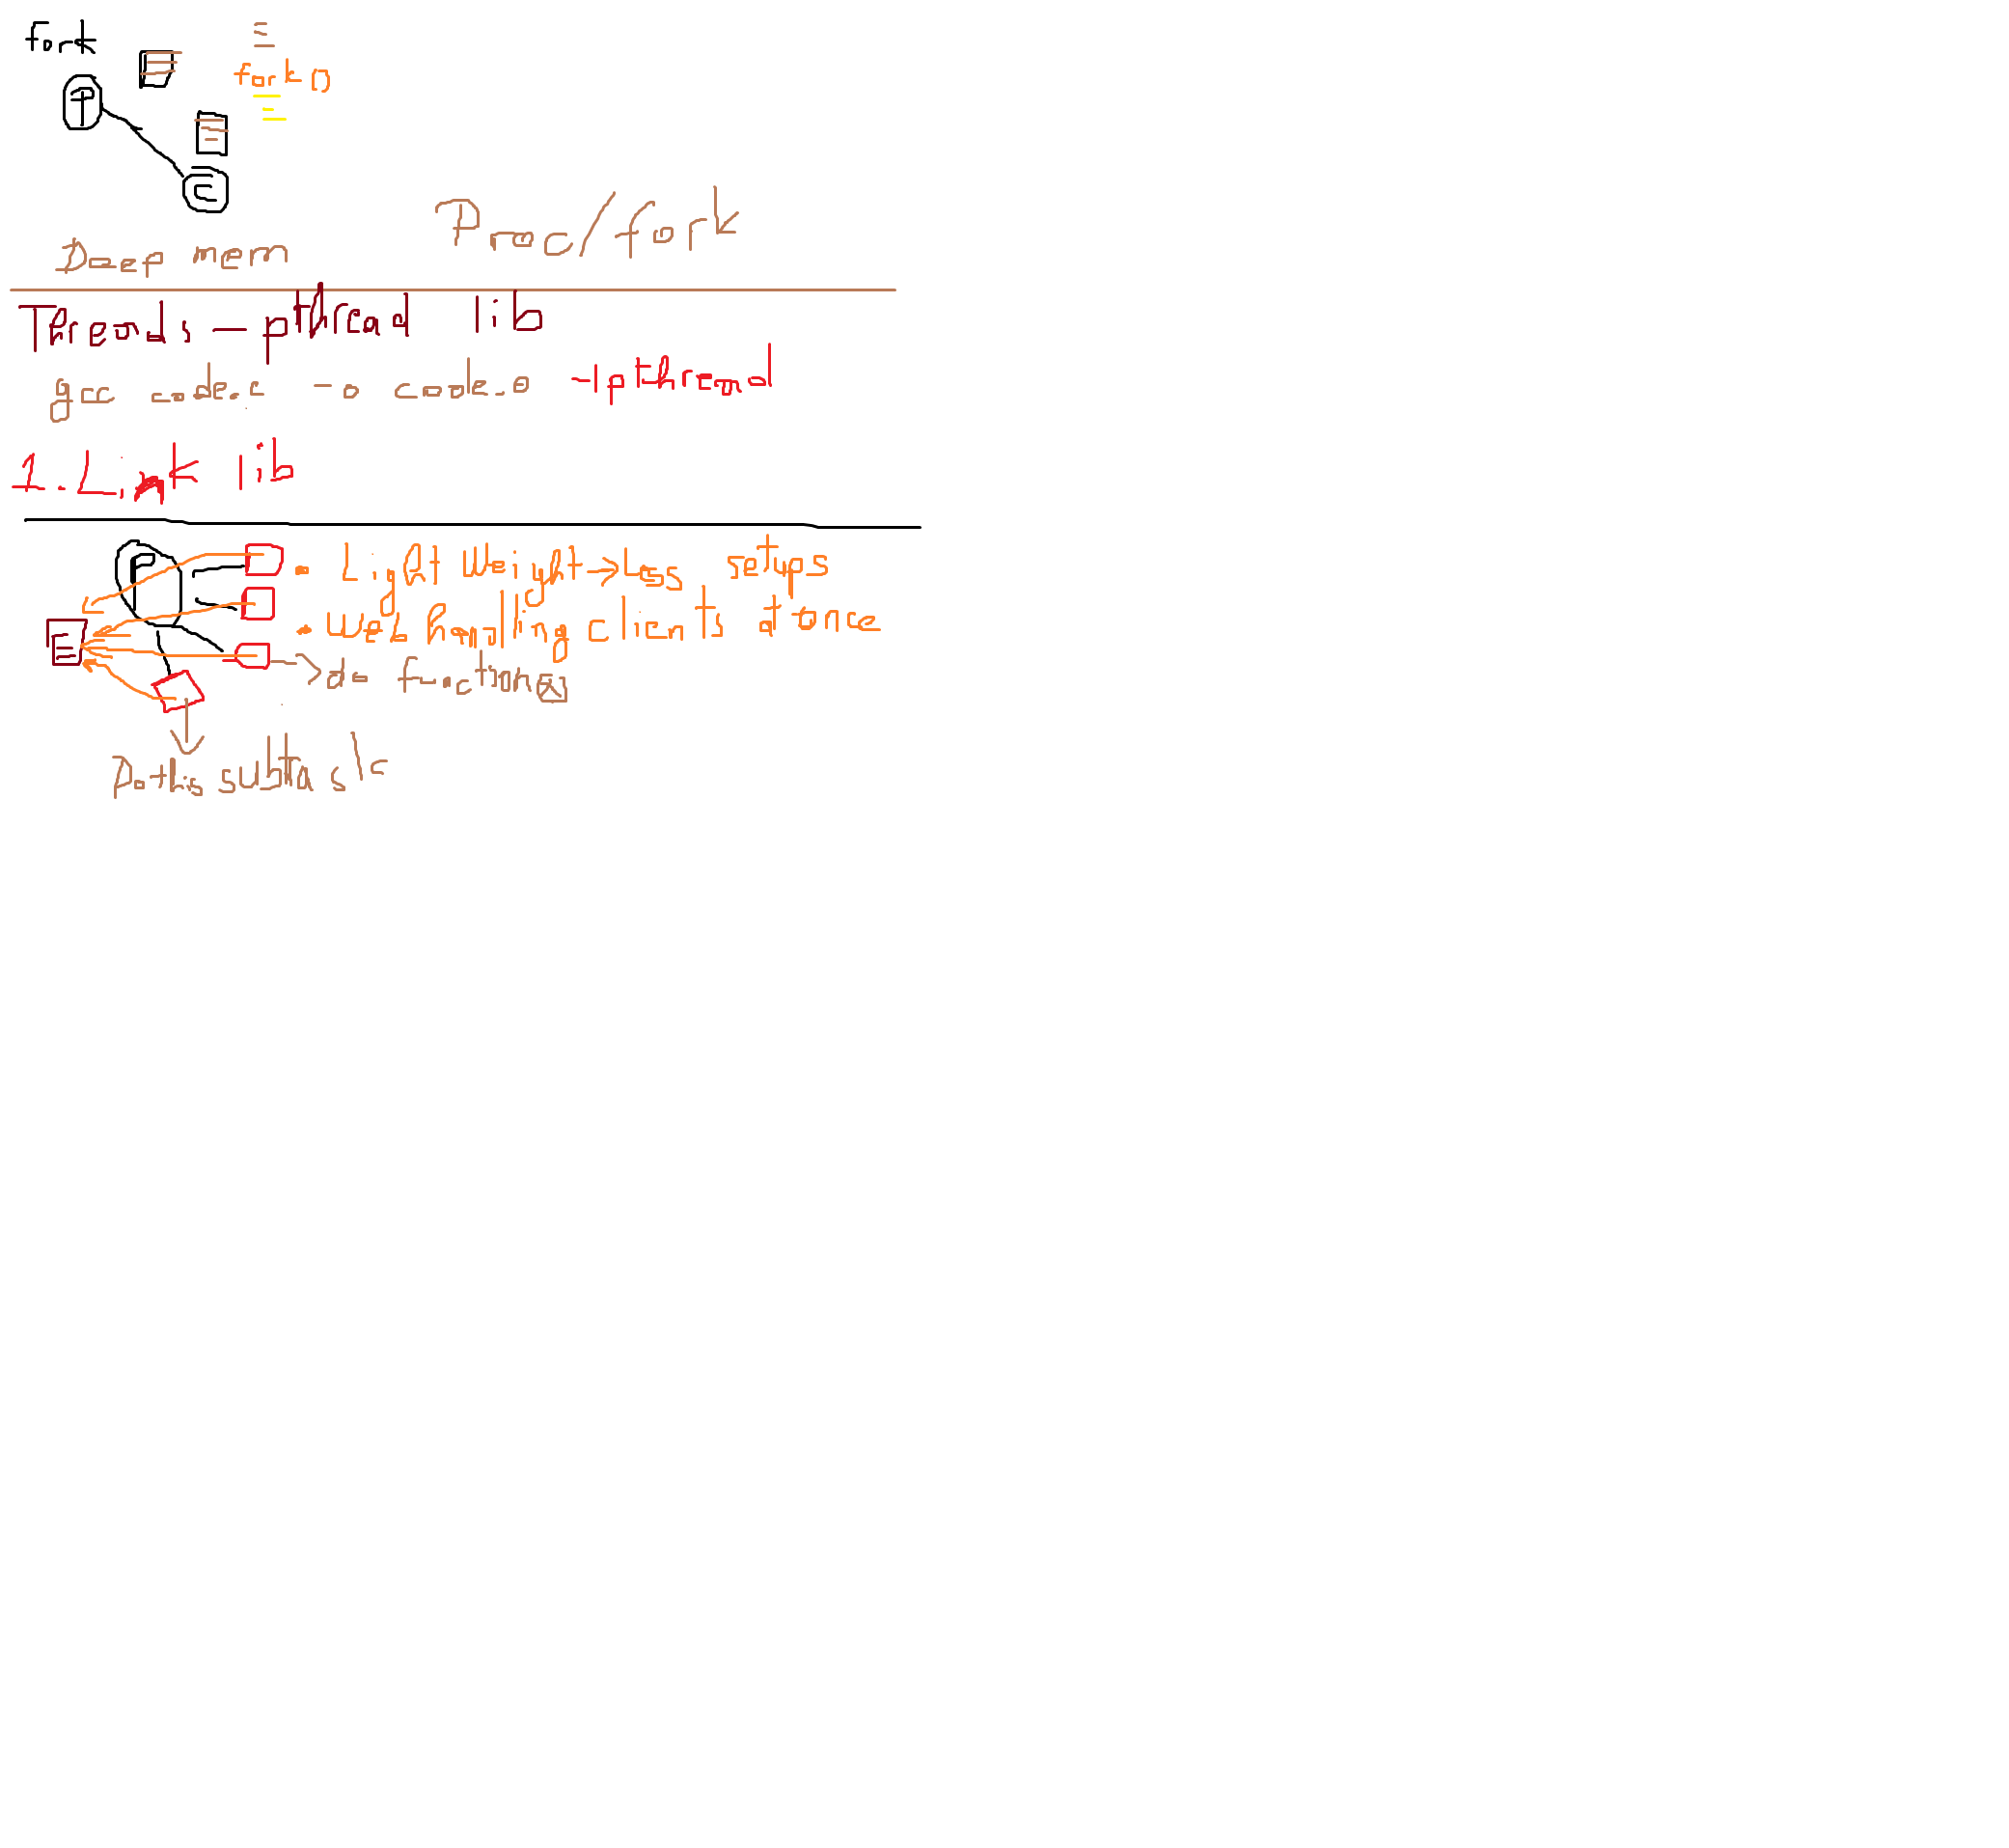 fork
fork()
P
C
Deep mem
Proc/fork
Threads - pthread lib
gcc code.c -o code.o -lpthread
1. Link lib
P
. Light Weight → Less setups
. Web handling clients at once
→ do function
Do this subtask